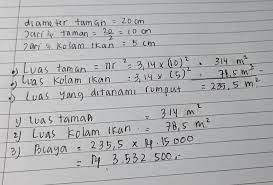 diameter taman = 20 cm
Jari 4 taman = 20/2 = 10 cm
Jari 4 kolam ikan = 5 cm
Luas taman = πr² = 3,14 x (10)² = 314 m²
Luas kolam ikan = 3,14 x (5)² = 78,5 m²
Luas yang ditanami rumput = 235,5 m²
1) Luas taman = 314 m²
2) Luas kolam ikan = 78,5 m²
3) Biaya = 235,5 x Rp. 15.000
= Rp 3.532.500.-